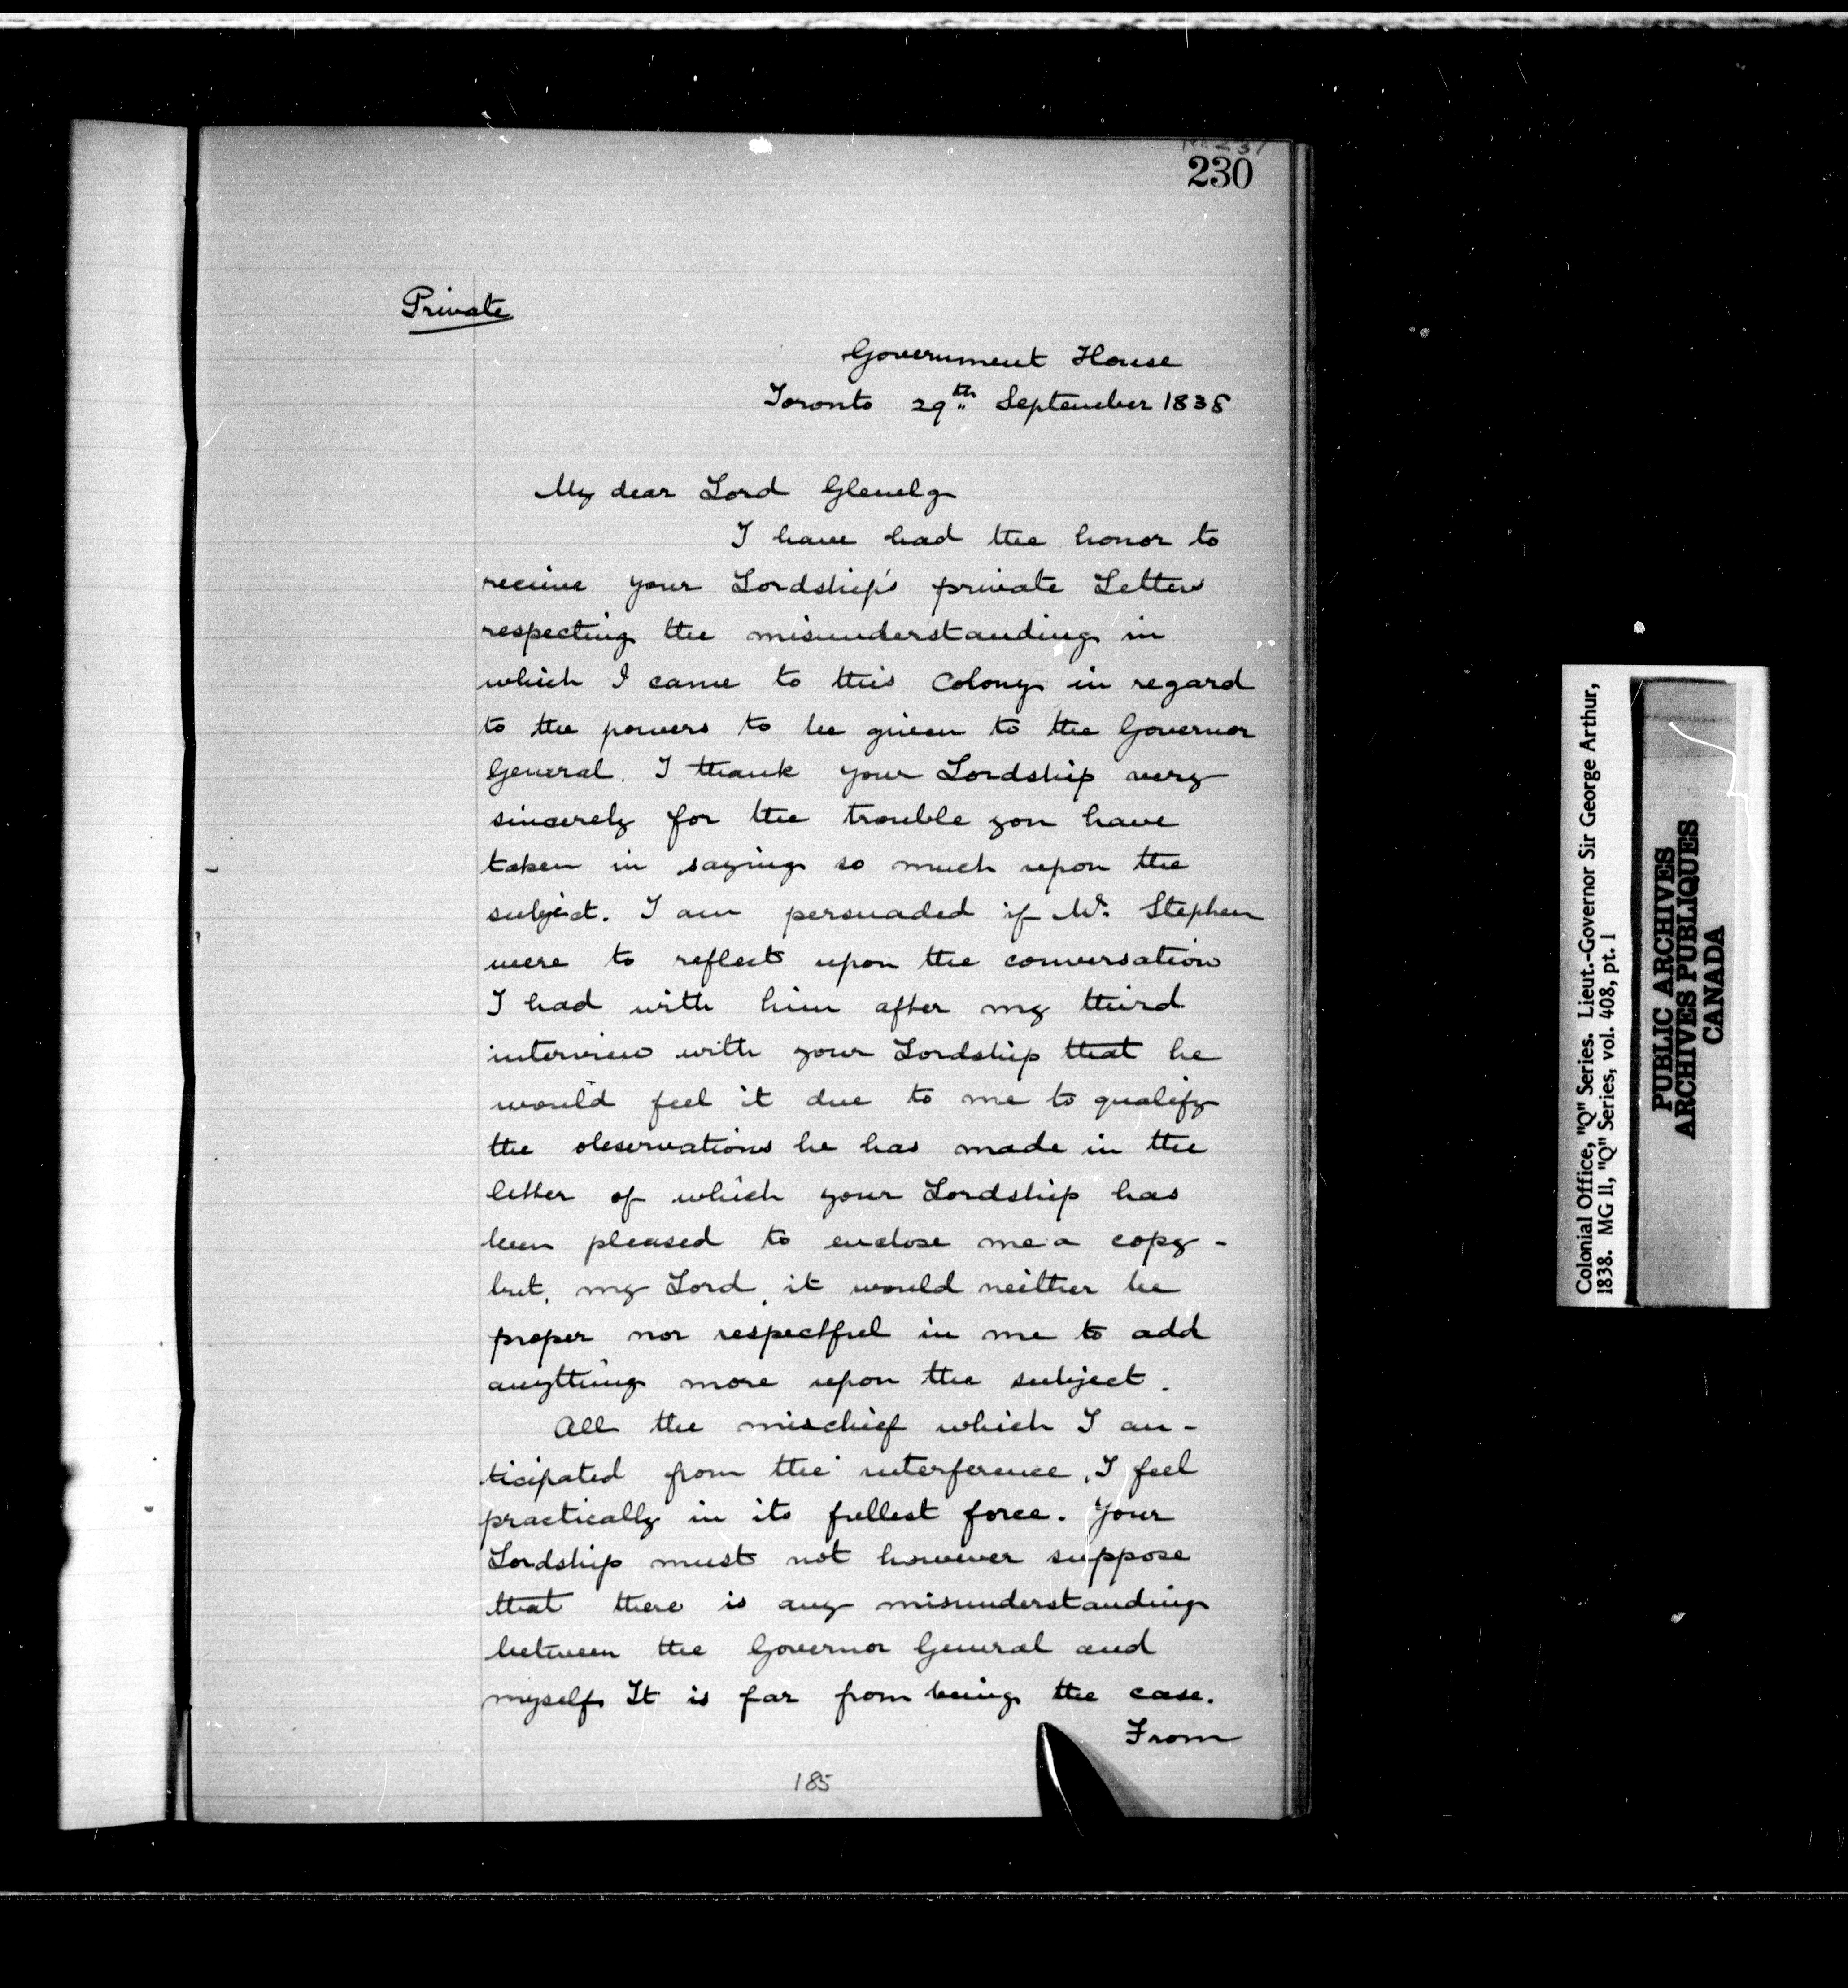 230
Private
Government House
Toronto 29th September 1838
My dear Lord Glenelg
I have had the honor to
receive your Lordship's private Letters
respecting the misunderstanding in
which I came to this Colony in regard
to the powers to be given to the Governor
General. I thank your Lordship very
sincerely for the trouble you have
taken in saying so much upon the
subject. I am persuaded if Mr. Stephen
were to reflect upon the conversation
I had with him after my third
interview with your Lordship that he
would feel it due to me to qualify
the observations he has made in the
letter of which your Lordship has
been pleased to enclose me a copy -
but, my Lord, it would neither be
proper nor respectful in me to add
anything more upon the subject.
All the mischief which I an-
ticipated from the interference, I feel
practically in its fullest force. Your
Lordship must not however suppose
that there is any misunderstanding
between the Governor General and
myself. It is far from being the case.
From
185
Colonial Office, "Q" Series. Lieut.-Governor Sir George Arthur,
1838. MG 11, "Q" Series, vol. 408, pt. 1
PUBLIC ARCHIVES
ARCHIVES PUBLIQUES
CANADA